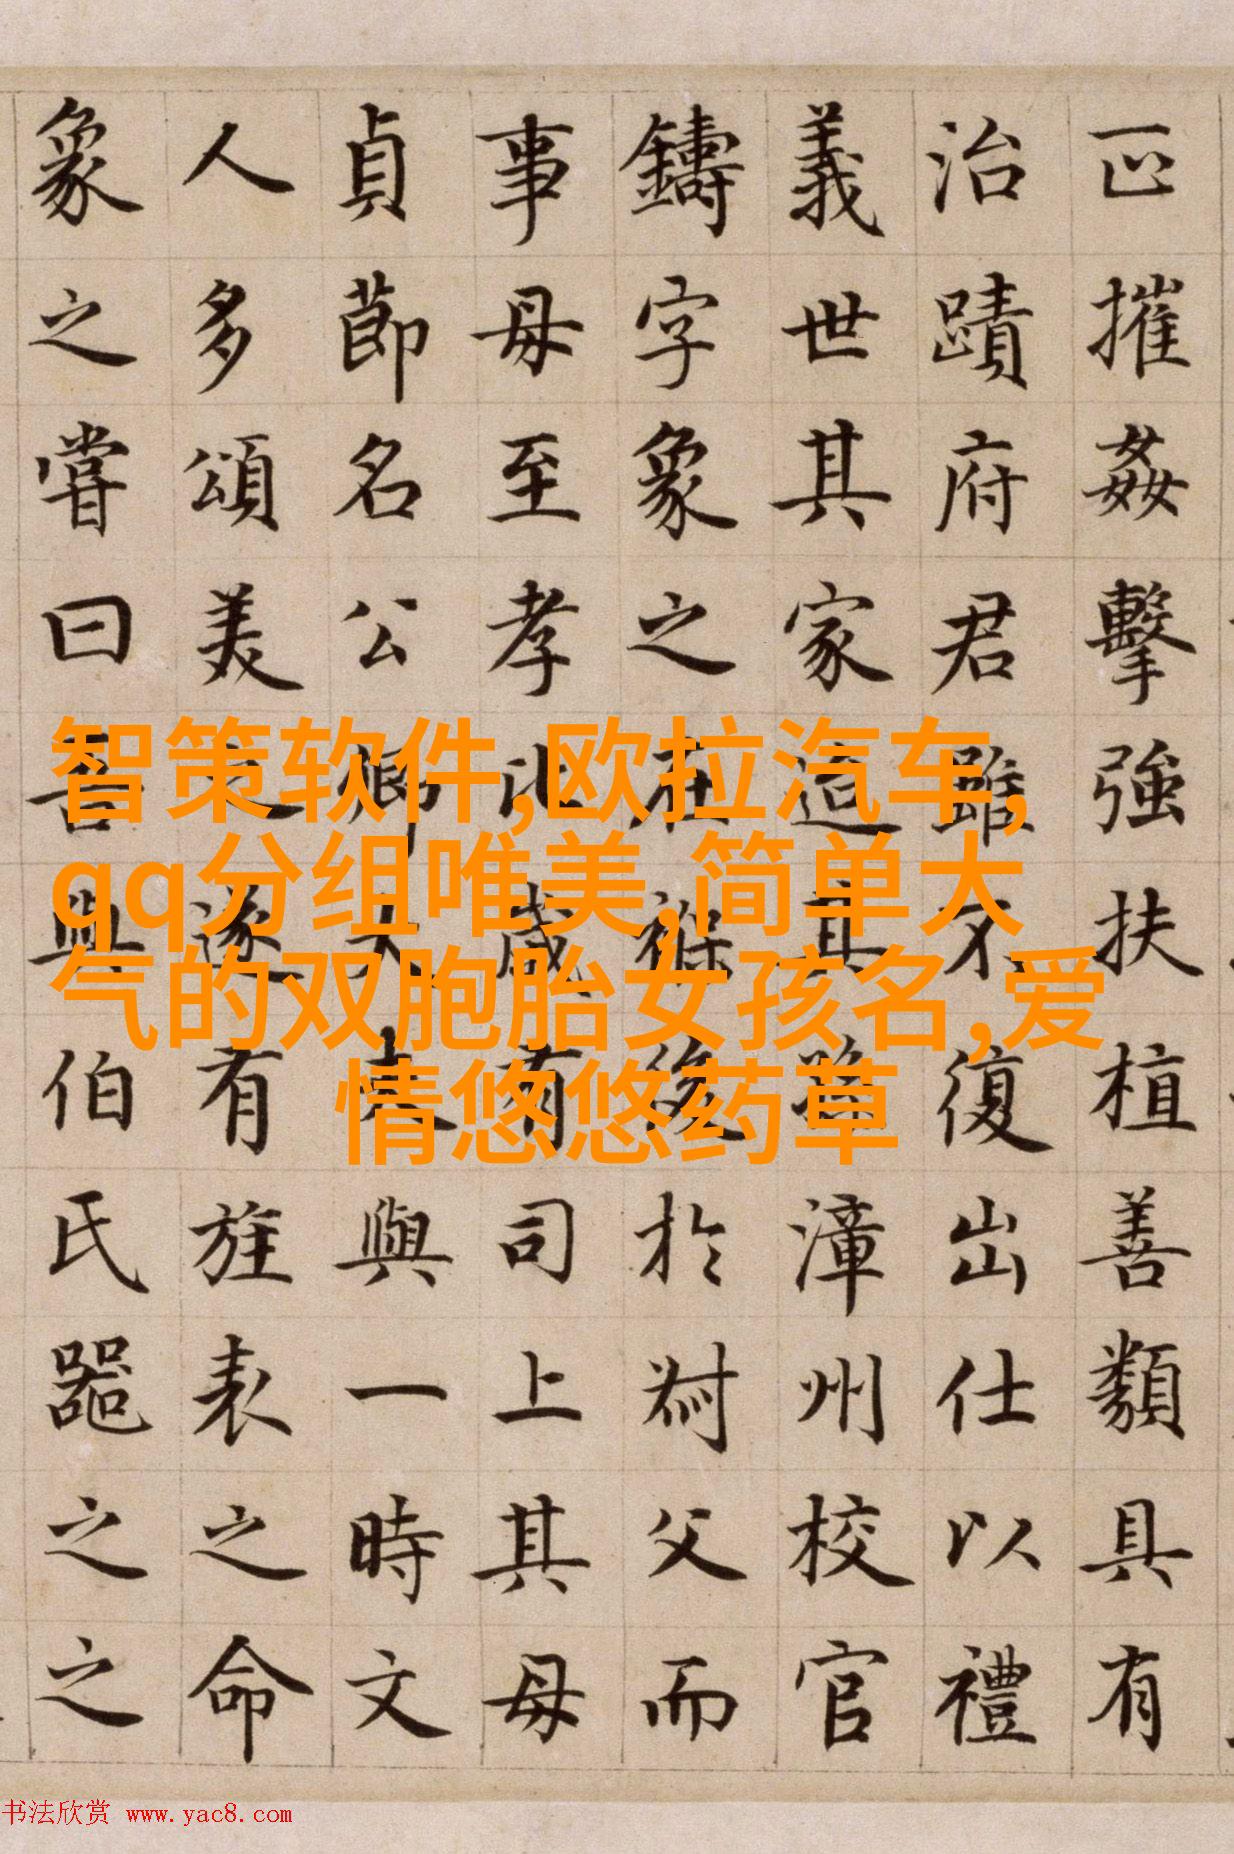 摧姦擊強扶植善類具有
治蹟府君雖不復出仕以禮
義世其家迨其漳州校官
鑄字象之在褓於父而
事母至孝比歲有司上其母
貞節名公卿大夫與一時文
人多頌美之遂有旌表之命
象之嘗曰吾與伯氏器之之
智策软件,欧拉汽车,
qq分组唯美,简单大
气的双胞胎女孩名,爱
情悠悠药草
书法欣赏 www.yac8.com